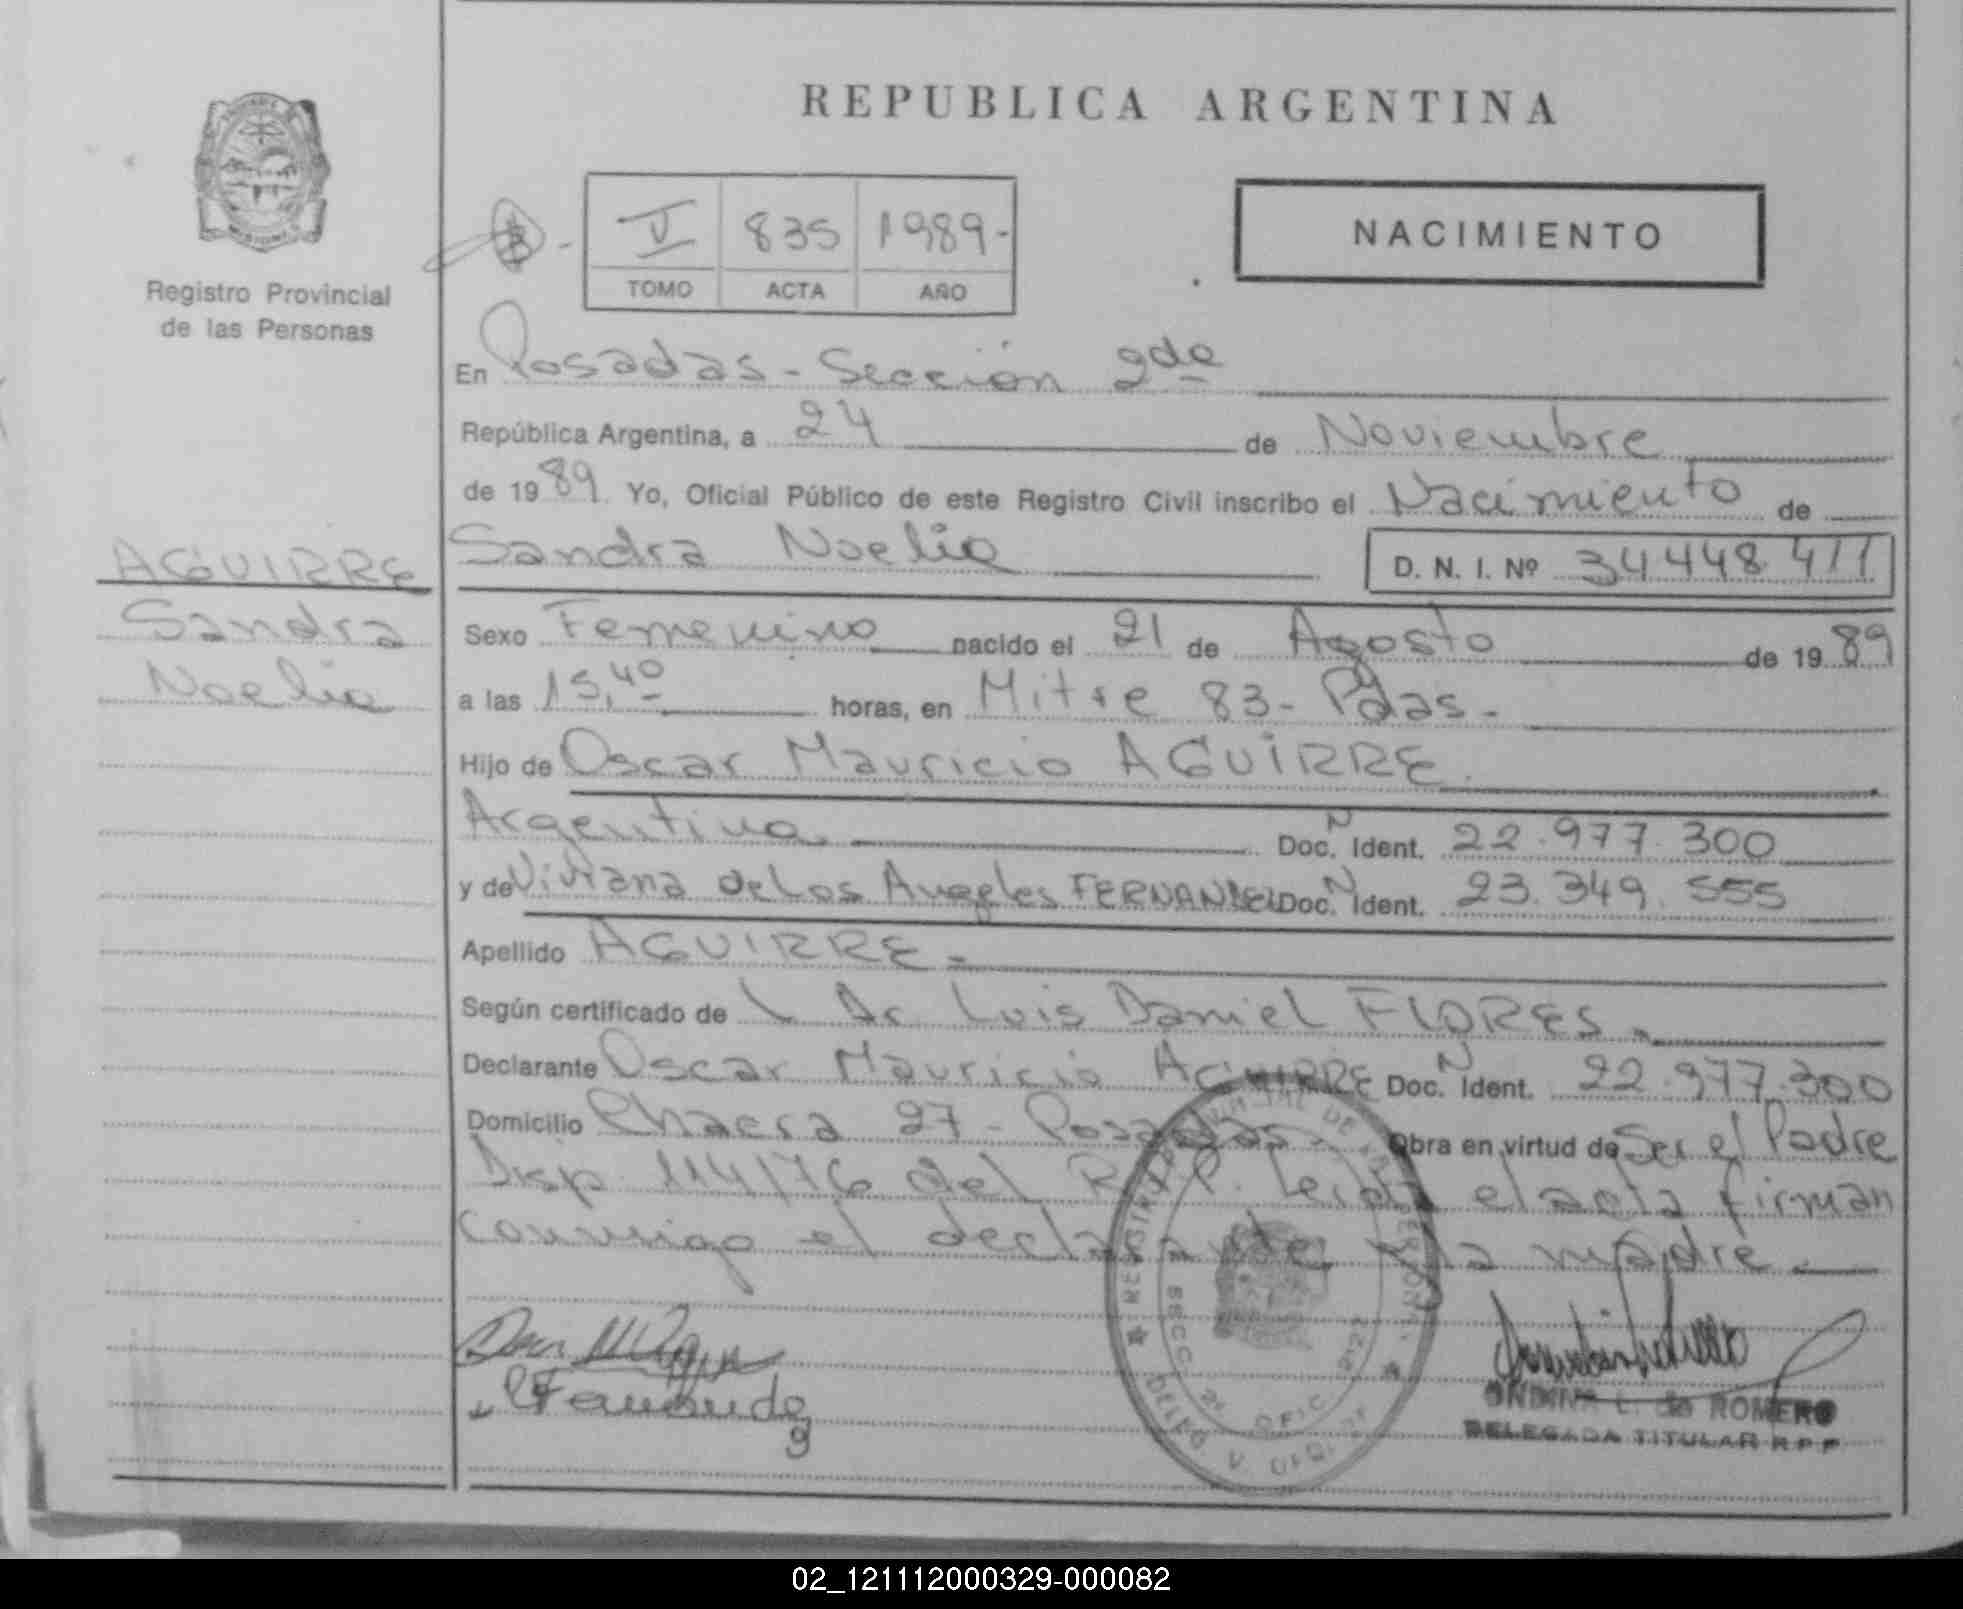 REPUBLICA ARGENTINA
Registro Provincial
de las Personas
V 835 1989-
TOMO ACTA AÑO
NACIMIENTO
En Posadas - Sección 2da
República Argentina, a 24 de Noviembre
de 1989 Yo, Oficial Público de este Registro Civil inscribo el Nacimiento de
AGUIRRE
Sandra
Noelia
Sandra Noelia D. N. I. Nº 34448411
Sexo Femenino nacido el 21 de Agosto de 1989
a las 15,40 horas, en Mitre 83 - Pdas -
Hijo de Oscar Mauricio AGUIRRE
Argentina Doc. N Ident. 22.977.300
y de Viviana de Los Angeles FERNANDEZ Doc. N Ident. 23.349.555
Apellido AGUIRRE -
Según certificado de L Dr Luis Daniel FLORES -
Declarante Oscar Mauricio AGUIRRE Doc. N Ident. 22.977.300
Domicilio Chacra 27 - Posadas - Obra en virtud de Ser el Padre
Disp 114/76 del R.P.P. Leida el acta firman
conmigo el declarante y la madre. -
Fernandez
ONDINA L. de ROMERO
DELEGADA TITULAR R P P
02_121112000329-000082